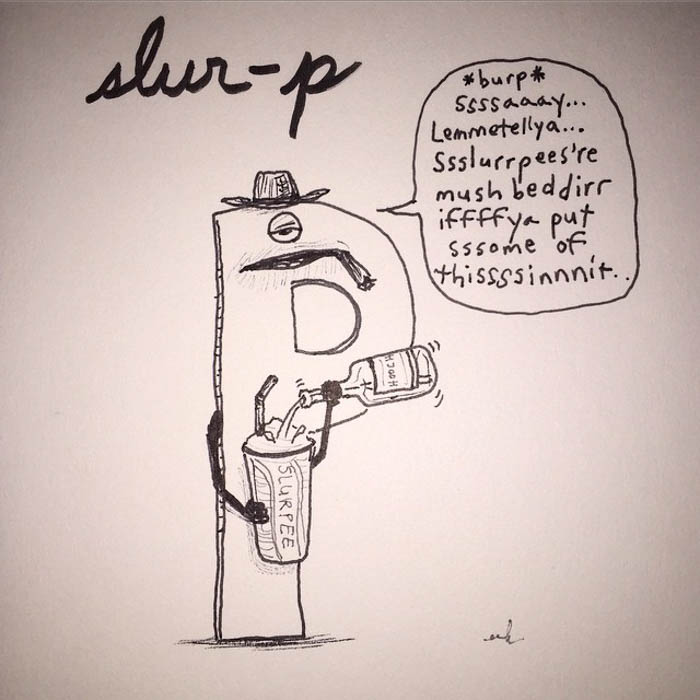 slur-p
*burp*
ssssaaay...
Lemmetellya...
Ssslurrpees're
mush beddirr
iffffya put
sssome of
thissssinnnit..
HOOCH
SLURPEE